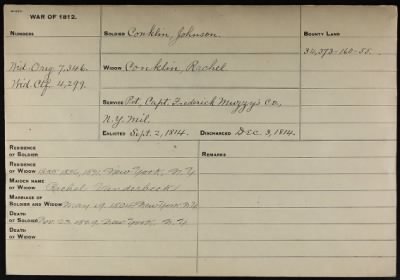 WAR OF 1812.
NUMBERS
Wid. Orig. 7,346.
Wid. Ctf. 4,299.
SOLDIER Conklin, Johnson.
WIDOW Conklin, Rachel
SERVICE Pvt. Capt. Frederick Muzzy's Co.,
N.Y. Mil.
ENLISTED Sept. 2, 1814. DISCHARGED Dec. 3, 1814.
BOUNTY LAND
34,373-160-55.
RESIDENCE
OF SOLDIER
RESIDENCE
OF WIDOW New York, N.Y.
MAIDEN NAME
OF WIDOW Rachel Vanderbeck
MARRIAGE OF
SOLDIER AND WIDOW May 19, New York, N.Y.
DEATH
OF SOLDIER Nov. 23, New York, N.Y.
DEATH
OF WIDOW
REMARKS